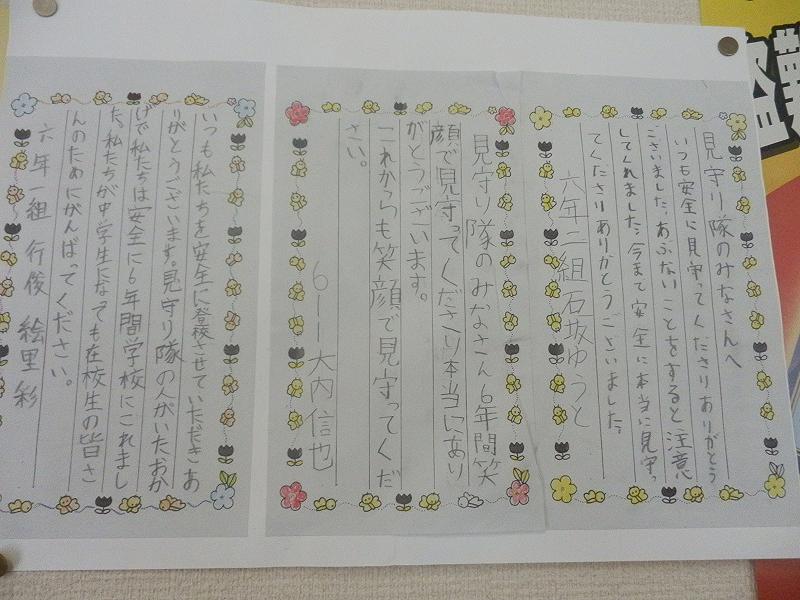 見守り隊のみなさんへ
いつも安全に見守ってくださりありがとう
ございました。あぶないことをすると注意
してくれました。今まで安全に本当に見守っ
てくださりありがとうございました。
六年二組石坂ゆうと
見守り隊のみなさん6年間笑
顔で見守ってくださり本当にあり
がとうございます。
これからも笑顔で見守ってくだ
さい。
6-1大内信也
いつも私たちを安全に登校させていただきあ
りがとうございます。見守り隊の人がいたおか
げで私たちは安全に6年間学校にこれまし
た。私たちが中学生になっても在校生の皆さ
んのためにがんばってください。
六年一組 行俊 絵里彩